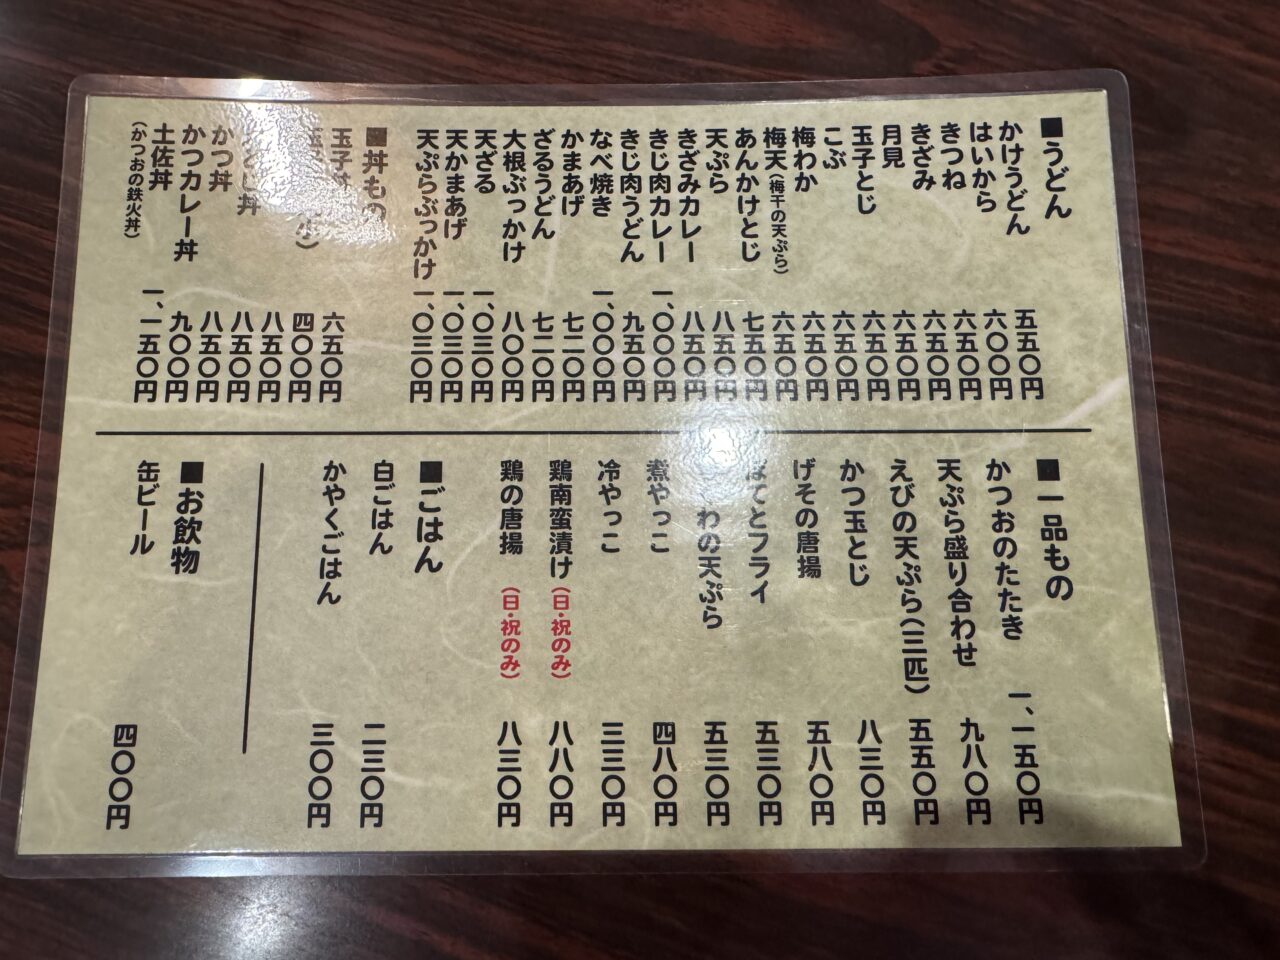 ■うどん
かけうどん 五五〇円
はいから 六〇〇円
きつね 六五〇円
きざみ 六五〇円
月見 六五〇円
玉子とじ 六五〇円
こぶ 六五〇円
梅わか 六五〇円
梅天（梅干の天ぷら） 六五〇円
あんかけとじ 七五〇円
天ぷら 八五〇円
きざみカレー 八五〇円
きじ肉カレー 一、〇〇〇円
きじ肉うどん 九五〇円
なべ焼き 一、〇〇〇円
かまあげ 七二〇円
ざるうどん 七二〇円
大根ぶっかけ 八〇〇円
天ざる 一、〇三〇円
天かまあげ 一、〇三〇円
天ぷらぶっかけ 一、〇三〇円
■丼もの
玉子丼 六五〇円
小） 四〇〇円
八五〇円
とじ丼 八五〇円
かつ丼 八五〇円
かつカレー丼 九〇〇円
土佐丼 一、一五〇円
（かつおの鉄火丼）
■一品もの
かつおのたたき 一、一五〇円
天ぷら盛り合わせ 九八〇円
えびの天ぷら（三匹） 五五〇円
かつ玉とじ 八三〇円
げその唐揚 五八〇円
ぽてとフライ 五三〇円
わの天ぷら 五三〇円
煮やっこ 四八〇円
冷やっこ 三三〇円
鶏南蛮漬け（日・祝のみ） 八八〇円
鶏の唐揚（日・祝のみ） 八三〇円
■ごはん
白ごはん 二三〇円
かやくごはん 三〇〇円
■お飲物
缶ビール 四〇〇円